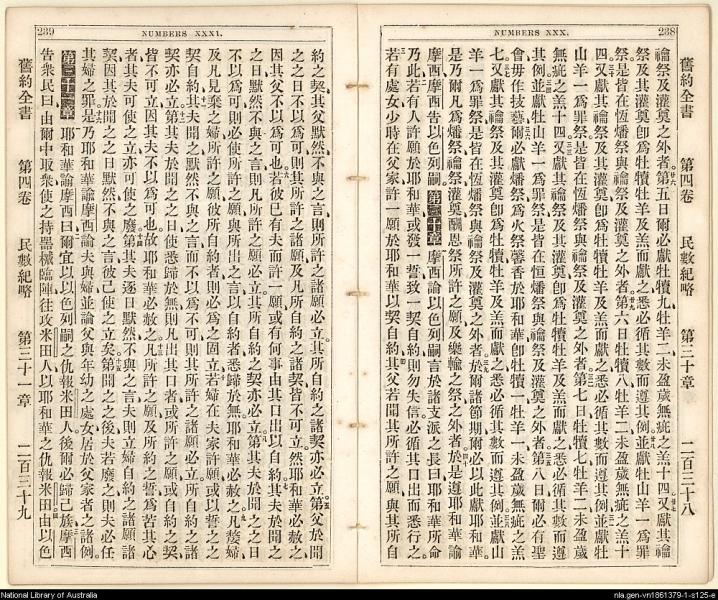 238
NUMBERS XXX.
舊約全書 第四卷 民數紀略 第三十章 二百三十八
禴祭及灌奠之外者第五日爾必獻牡犢九牡羊二未盈歲無疵之羔十四又獻其禴
祭及其灌奠卽爲牡犢牡羊及羔而獻之悉必循其數而遵其例並獻牡山羊一爲罪
祭是皆在恆燔祭與禴祭及灌奠之外者第六日牡犢八牡羊二未盈歲無疵之羔十
四又獻其禴祭及其灌奠卽爲牡犢牡羊及羔而獻之悉必循其數而遵其例並獻牡
山羊一爲罪祭是皆在恆燔祭與禴祭及灌奠之外者第七日牡犢七牡羊二未盈歲
無疵之羔十四又獻其禴祭及其灌奠卽爲牡犢牡羊及羔而獻之悉必循其數而遵
其例並獻牡山羊一爲罪祭是皆在恆燔祭與禴祭及灌奠之外者第八日爾必有聖
會毋作技藝爾必獻燔祭爲火祭馨香於耶和華卽牡犢一牡羊一未盈歲無疵之羔
七又獻其禴祭及其灌奠卽爲牡犢牡羊及羔而獻之悉必循其數而遵其例並獻山
羊一爲罪祭是皆在恆燔祭與禴祭及灌奠之外者於爾諸節期爾必以此獻耶和華
是乃爾凡爲燔祭禴祭灌奠酬恩祭所許之願及樂輸之祭之外者於是遵耶和華諭
摩西摩西告以色列嗣 第三十章 摩西諭以色列嗣言於諸支派之長曰耶和華所命
乃此若有人許願於耶和華或發一誓致一契自約則勿失信必循其口出而悉行之
若有處女少時在父家許一願於耶和華以契自約其父若聞其所許之願與其所自
239
NUMBERS XXXI.
約之契其父默然不與之言則所許之諸願必立其所自約之諸契亦必立第父於聞
之之日不以爲可則其所許之諸願及凡所自約之諸契皆不可立然耶和華必赦之
因其父不以爲可也若彼已有夫而許一願或有何事由其口出以自約其夫於聞之
之日默然不與之言則凡所許之願必立其所自約之契亦必立第其夫於聞之之日
不以爲可則必使所許之願與所出之言以自約者悉歸於無耶和華必赦之凡嫠婦
及凡見棄之婦所許之願彼所自約者則必爲之固立若婦在夫家許願或以誓之之
契自約其夫聞之默然不與之言而不以爲不可則其所許之諸願必立所自約之契
契亦必立第其夫於聞之之日使悉歸於無則凡出其口者或所許之願或自約之契
皆不可立因其夫不以爲可也故耶和華必赦之凡所許之願及所約之誓爲苦其心
者其夫可使之立亦可使之廢第其夫逐日默然不與之言夫則立婦自約之諸願諸
契因其於聞之之日默然不與之言彼已使之立矣第聞之之後夫若廢之則夫必任
其婦之罪是乃耶和華諭摩西論夫與婦並論父與年幼之處女居於父家者之諸例
第三十一章 耶和華諭摩西曰爾宜以以色列嗣之仇報米田人後爾必歸己族摩西
告衆民曰由爾中取衆使之持器械臨陣往攻米田人以耶和華之仇報米田由以色
舊約全書 第四卷 民數紀略 第三十一章 二百三十九
National Library of Australia
nla.gen-vn1861379-1-s125-e